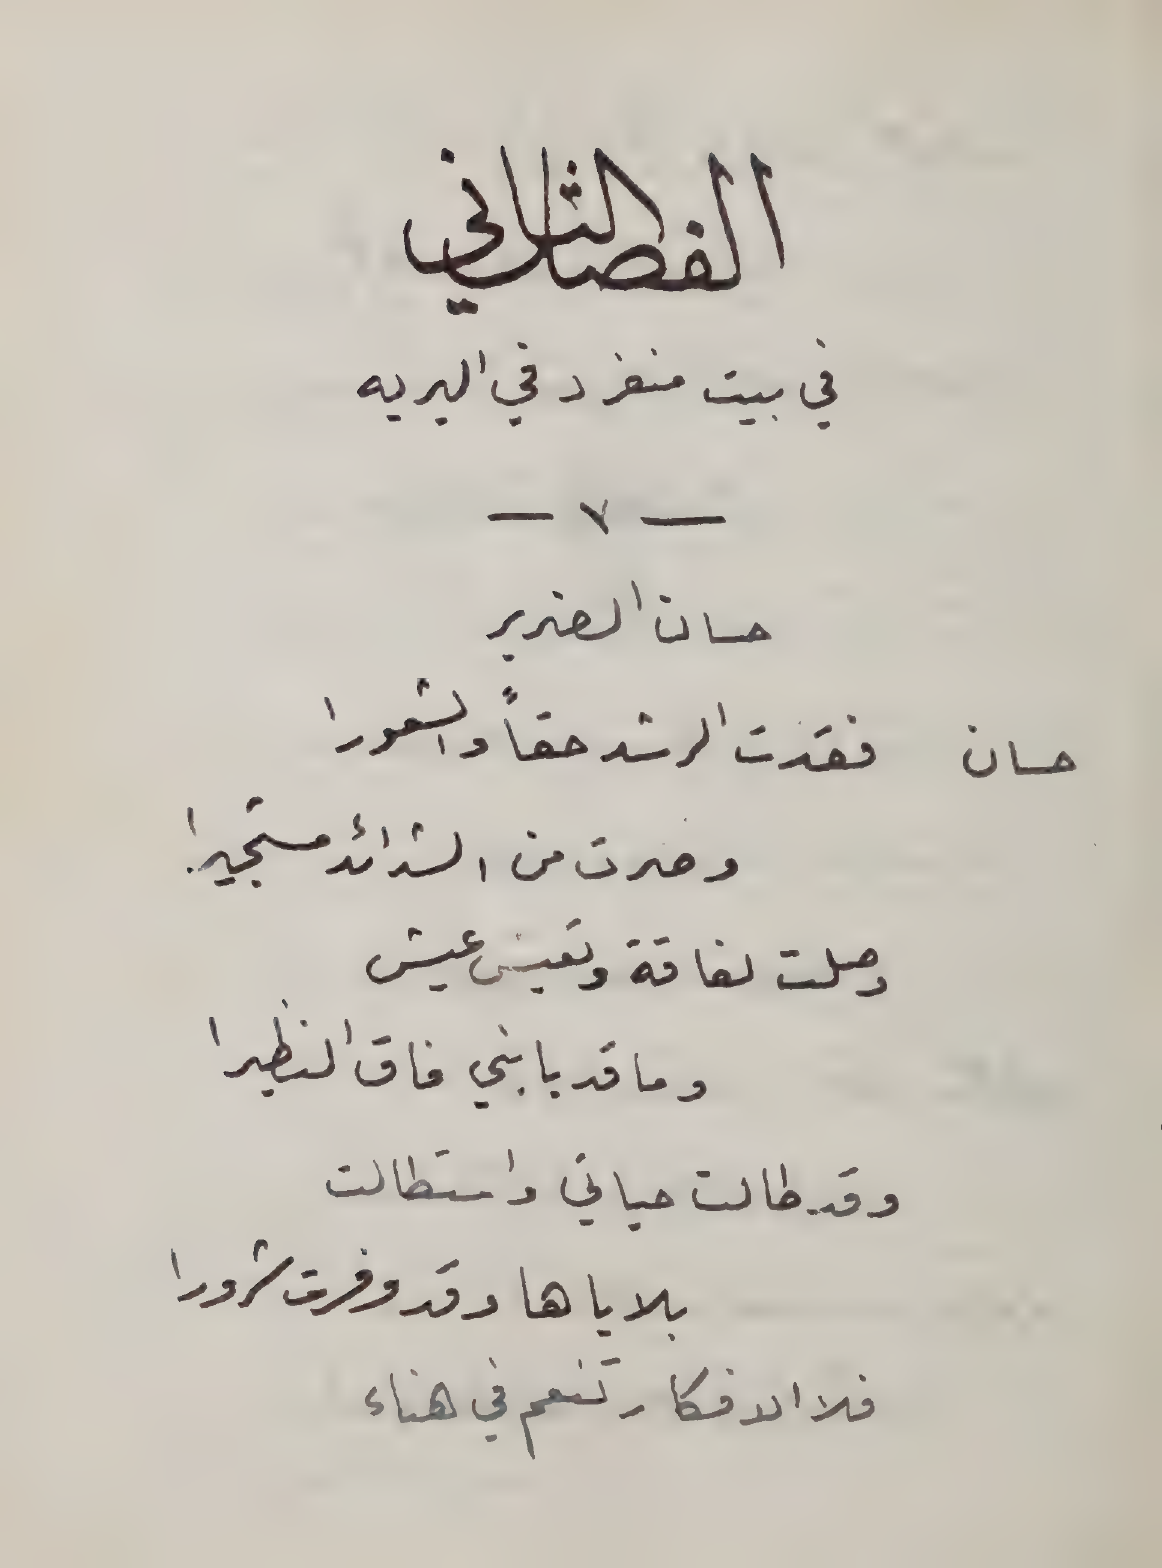 الفصل الثاني
في بيت منفرد في البريه
— ٧ —
حسان الضرير
حسان فقدت الرشد حقاً والشعورا
وصرت من الشدائد مستجيرا
وصلت لفاقة وتعيس عيش
وما قد بابني فاق النظيرا
وقد طالت حياتي واستطالت
بلاياها وقد وفرت شرورا
فلا الافكار تنعم في هناء